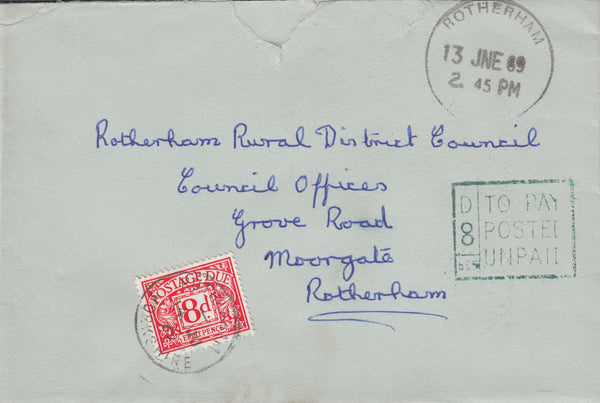 ROTHERHAM
13 JNE 69
2. 45 PM
Rotherham Rural District Council
Council Offices
Grove Road
Moorgate
Rotherham
D
8
TO PAY
POSTED
UNPAID
POSTAGE DUE
8d
EIGHT PENCE